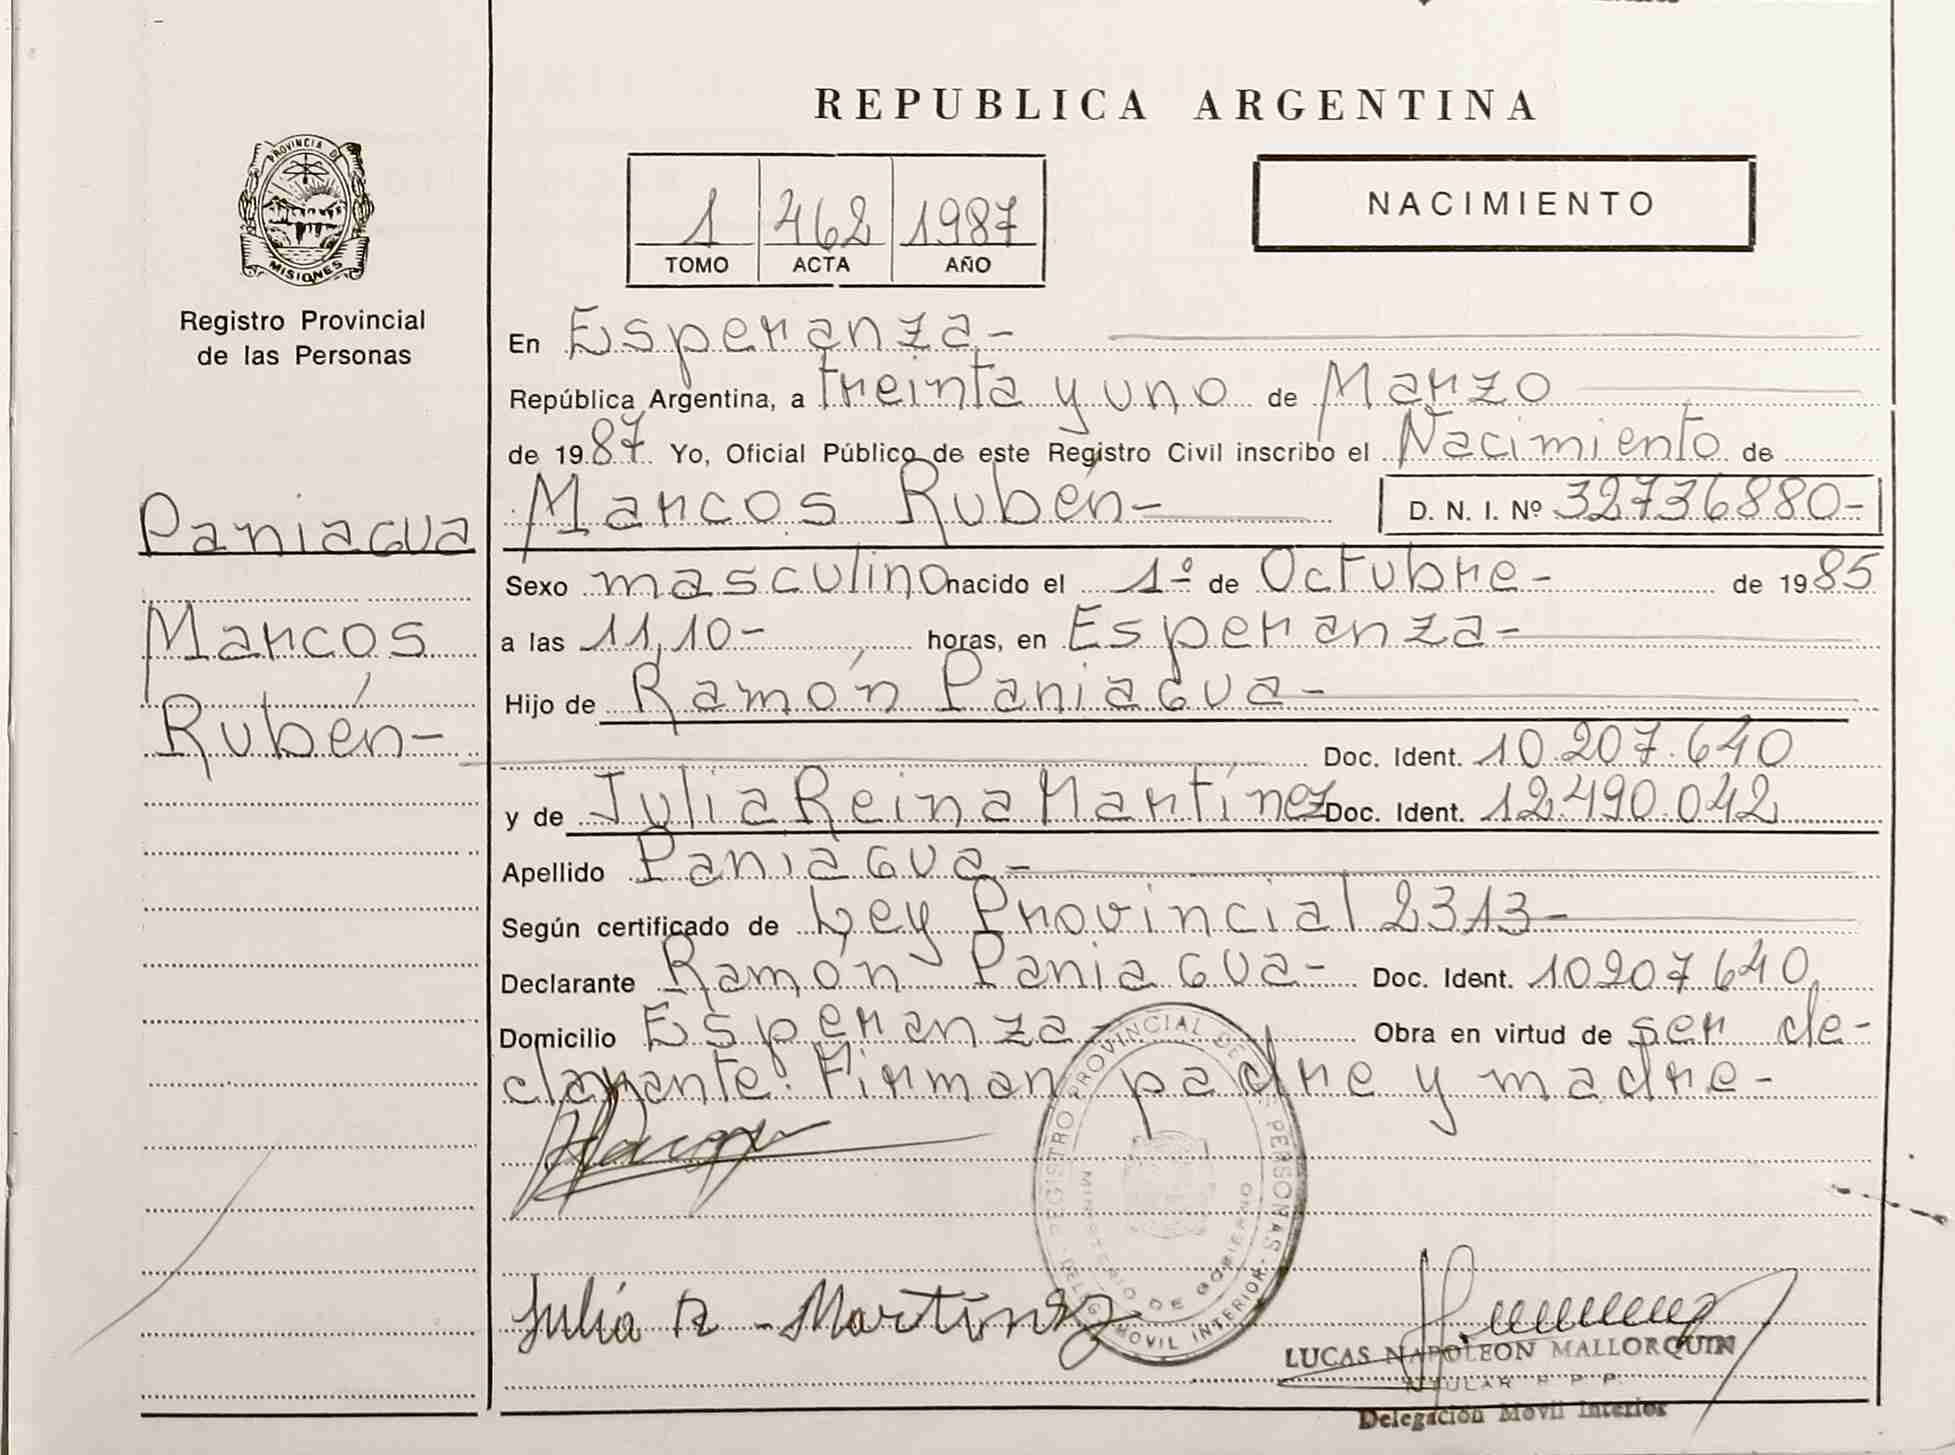 REPUBLICA ARGENTINA
PROVINCIA DE
MISIONES
Registro Provincial
de las Personas
1 462 1987
TOMO ACTA AÑO
NACIMIENTO
En Esperanza-
República Argentina, a treinta y uno de Marzo
de 1987. Yo, Oficial Público de este Registro Civil inscribo el Nacimiento de
Marcos Rubén- D. N. I. Nº 32736880-
Paniagua
Marcos
Rubén-
Sexo masculino nacido el 1º de Octubre- de 1985
a las 11,10- horas, en Esperanza-
Hijo de Ramón Paniagua-
Doc. Ident. 10.207.640
y de Julia Reina Martínez Doc. Ident. 12.490.042
Apellido Paniagua-
Según certificado de Ley Provincial 2313-
Declarante Ramón Paniagua- Doc. Ident. 10207640
Domicilio Esperanza- Obra en virtud de ser de-
clarante. Firman padre y madre-
REGISTRO PROVINCIAL DE LAS PERSONAS
MINISTERIO DE GOBIERNO
DELEG. MOVIL INTERIOR
Julia R - Martínez
LUCAS NAPOLEON MALLORQUIN
TITULAR R P P
Delegación Movil Interior